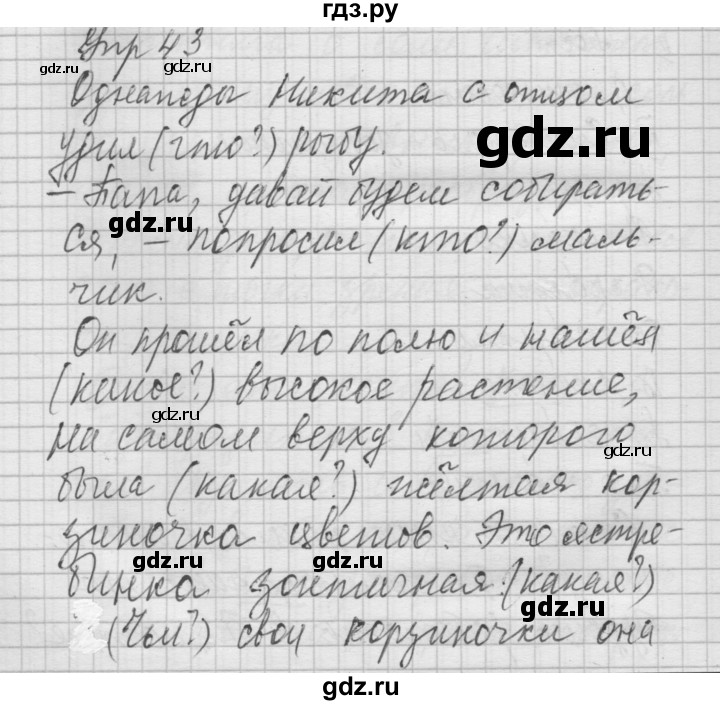 гдз.ру
Упр 43
gdz.ru
gdz.ru
Однажды Никита с отцом
удил (что?) рыбу.
gdz.ru
– Папа, давай будем собирать-
gdz.ru
gdz.ru
ся, – попросил (кто?) маль-
чик.
Он прошёл по полю и нашёл
gdz.ru
(какое?) высокое растение,
gdz.ru
на самом верху которого
была (какая?) жёлтая кор-
зиночка цветов. Это ястре-
gdz.ru
gdz.ru
бинка зонтичная (какая?)
gdz.ru
(Чьи?) свои корзиночки она
gdz.ru
gdz.ru